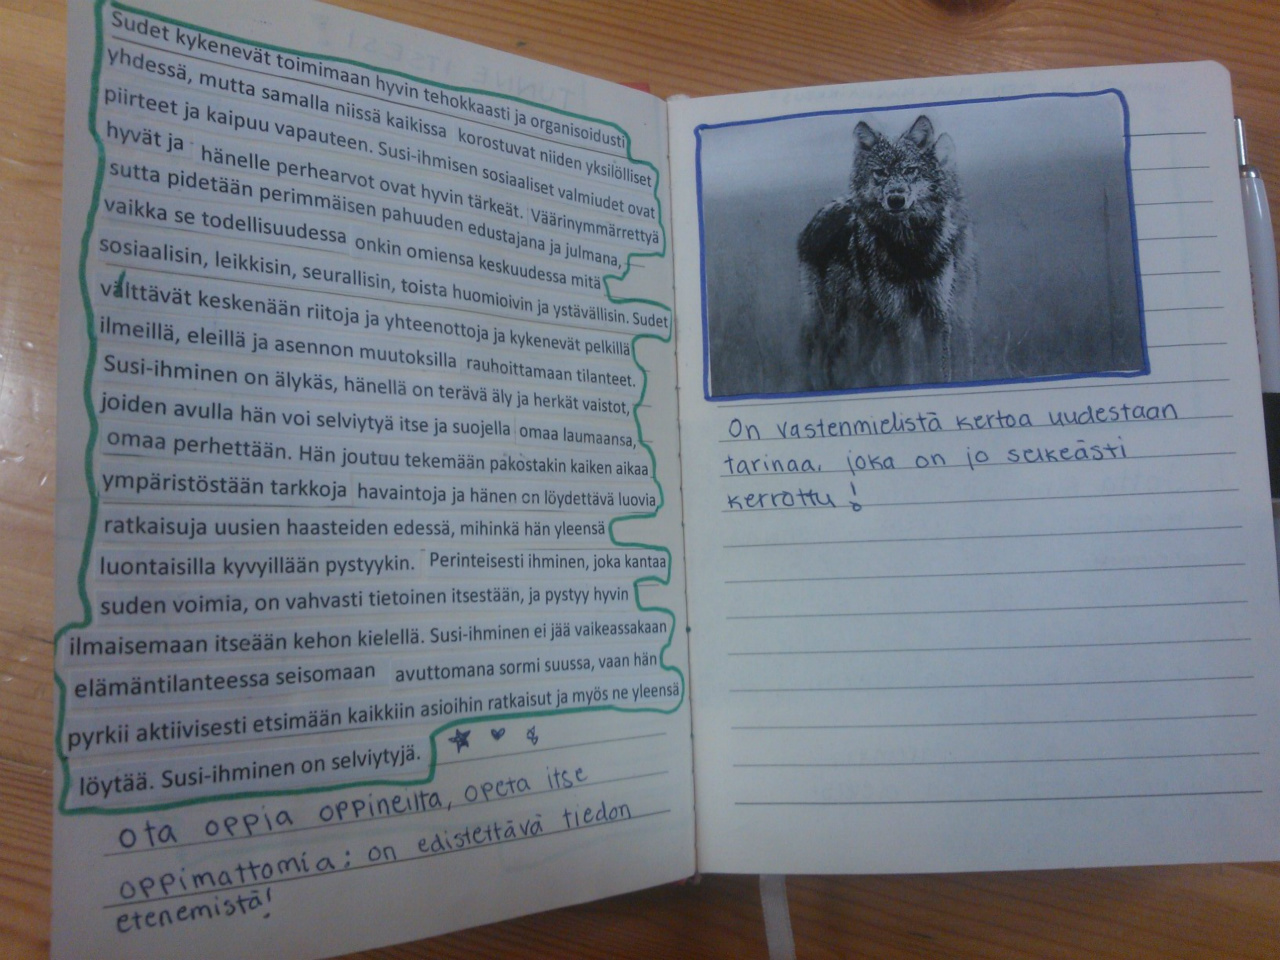 Sudet kykenevät toimimaan hyvin tehokkaasti ja organisoidusti
yhdessä, mutta samalla niissä kaikissa korostuvat niiden yksilölliset
piirteet ja kaipuu vapauteen. Susi-ihmisen sosiaaliset valmiudet ovat
hyvät ja hänelle perhearvot ovat hyvin tärkeät. Väärinymmärrettyä
sutta pidetään perimmäisen pahuuden edustajana ja julmana,
vaikka se todellisuudessa onkin omiensa keskuudessa mitä
sosiaalisin, leikkisin, seurallisin, toista huomioivin ja ystävällisin. Sudet
välttävät keskenään riitoja ja yhteenottoja ja kykenevät pelkillä
ilmeillä, eleillä ja asennon muutoksilla rauhoittamaan tilanteet.
Susi-ihminen on älykäs, hänellä on terävä äly ja herkät vaistot,
joiden avulla hän voi selviytyä itse ja suojella omaa laumaansa,
omaa perhettään. Hän joutuu tekemään pakostakin kaiken aikaa
ympäristöstään tarkkoja havaintoja ja hänen on löydettävä luovia
ratkaisuja uusien haasteiden edessä, mihinkä hän yleensä
luontaisilla kyvyillään pystyykin. Perinteisesti ihminen, joka kantaa
suden voimia, on vahvasti tietoinen itsestään, ja pystyy hyvin
ilmaisemaan itseään kehon kielellä. Susi-ihminen ei jää vaikeassakaan
elämäntilanteessa seisomaan avuttomana sormi suussa, vaan hän
pyrkii aktiivisesti etsimään kaikkiin asioihin ratkaisut ja myös ne yleensä
löytää. Susi-ihminen on selviytyjä.
ota oppia oppineilta, opeta itse
oppimattomia; on edistettävä tiedon
etenemistä!
On vastenmielistä kertoa uudestaan
tarinaa, joka on jo selkeästi
kerrottu!